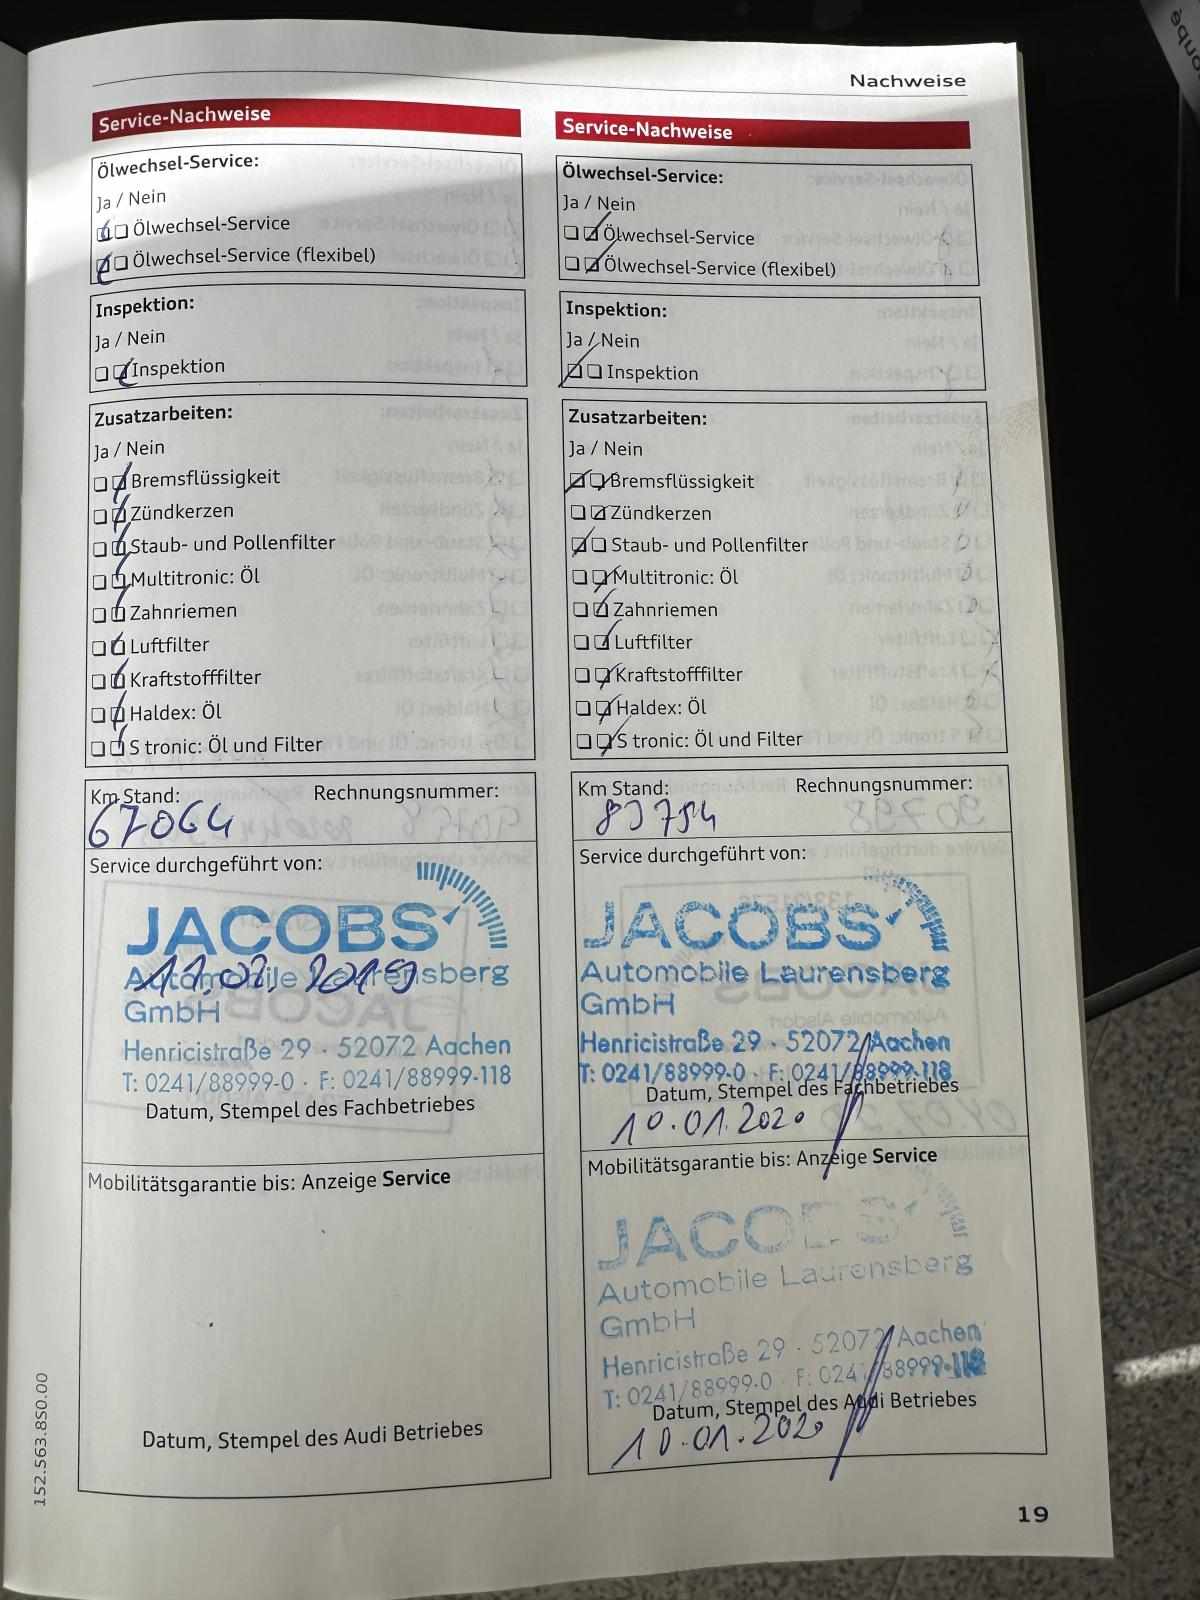 Nachweise
Service-Nachweise
Ölwechsel-Service:
Ja / Nein
Ölwechsel-Service
Ölwechsel-Service (flexibel)
Inspektion:
Ja / Nein
Inspektion
Zusatzarbeiten:
Ja / Nein
Bremsflüssigkeit
Zündkerzen
Staub- und Pollenfilter
Multitronic: Öl
Zahnriemen
Luftfilter
Kraftstofffilter
Haldex: Öl
S tronic: Öl und Filter
Km Stand: Rechnungsnummer:
67064
Service durchgeführt von:
JACOBS
Automobile Laurensberg
GmbH
Henricistraße 29 · 52072 Aachen
T: 0241/88999-0 · F: 0241/88999-118
Datum, Stempel des Fachbetriebes
Mobilitätsgarantie bis: Anzeige Service
Datum, Stempel des Audi Betriebes
152.563.8S0.00
Service-Nachweise
Ölwechsel-Service:
Ja / Nein
Ölwechsel-Service
Ölwechsel-Service (flexibel)
Inspektion:
Ja / Nein
Inspektion
Zusatzarbeiten:
Ja / Nein
Bremsflüssigkeit
Zündkerzen
Staub- und Pollenfilter
Multitronic: Öl
Zahnriemen
Luftfilter
Kraftstofffilter
Haldex: Öl
S tronic: Öl und Filter
Km Stand: Rechnungsnummer:
Service durchgeführt von:
JACOBS
Automobile Laurensberg
GmbH
Henricistraße 29 · 52072 Aachen
T: 0241/88999-0 · F: 0241/88999-118
Datum, Stempel des Fachbetriebes
10.01.2020
Mobilitätsgarantie bis: Anzeige Service
JACOBS
Automobile Laurensberg
GmbH
Henricistraße 29 · 52072 Aachen
T: 0241/88999-0 · F: 0241/88999-118
Datum, Stempel des Audi Betriebes
10.01.2020
19